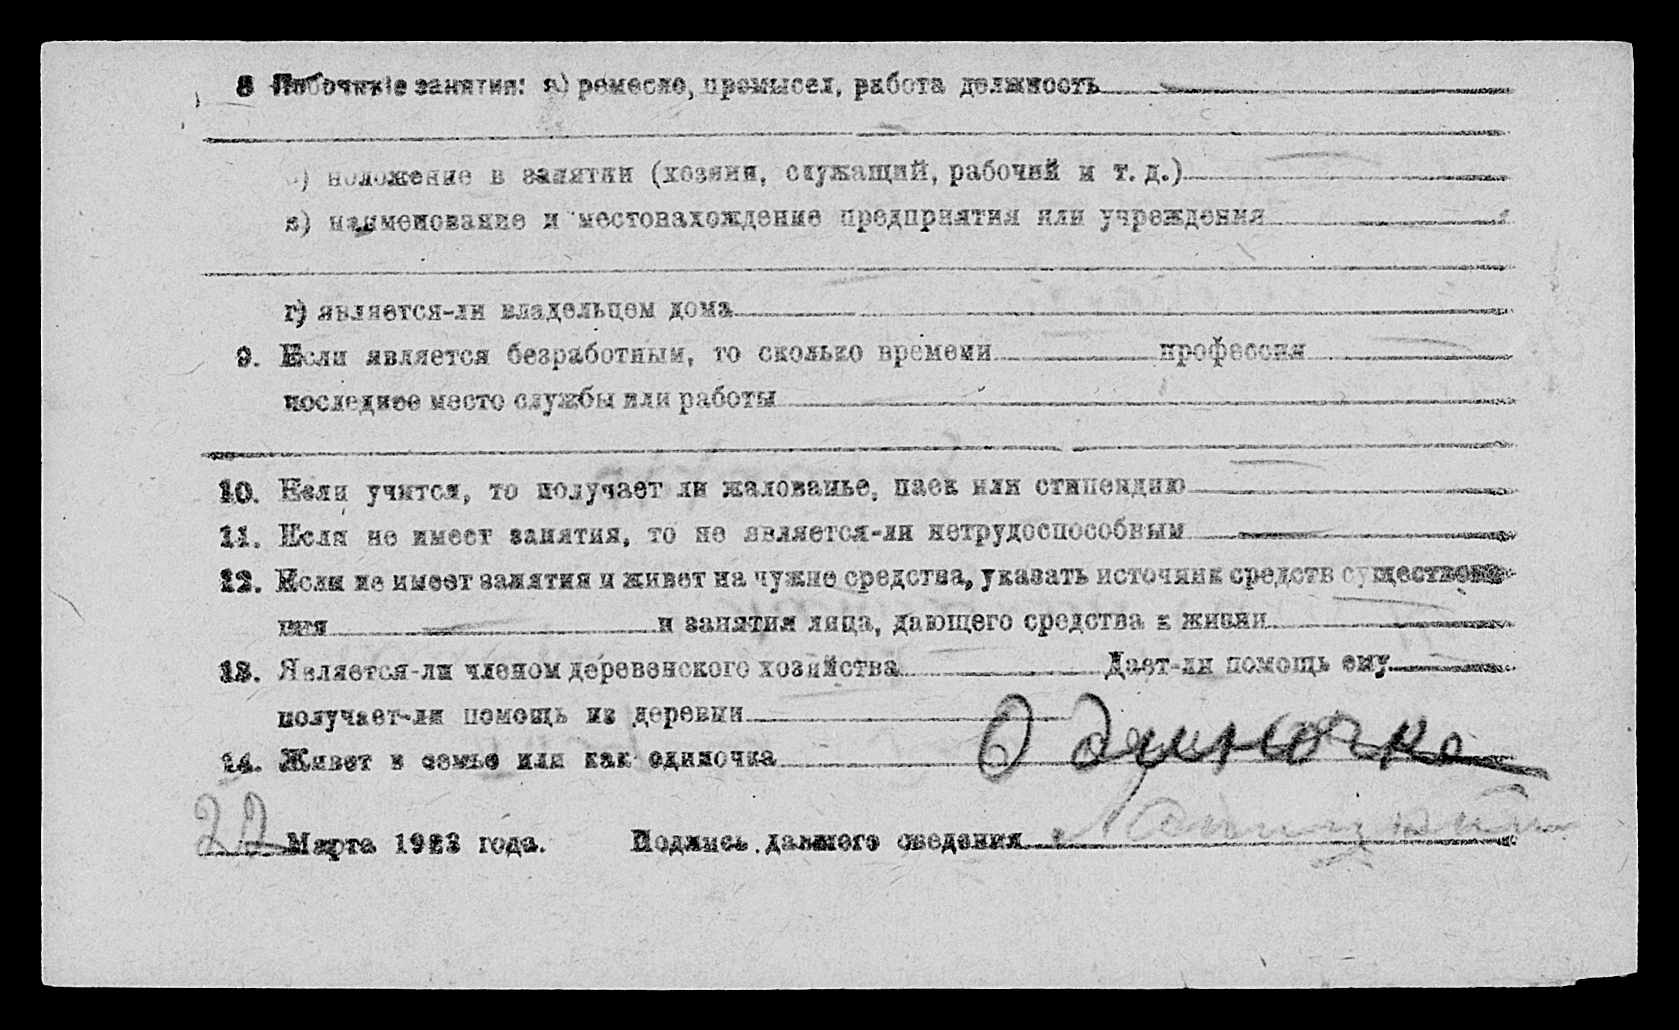 8 Побочные занятия: а) ремесло, промысел, работа должность
б) положение в занятии (хозяин, служащий, рабочий и т. д.)
в) наименование и местонахождение предприятия или учреждения
г) является-ли владельцем дома
9. Если является безработным, то сколько времени профессия
последнее место службы или работы
10. Если учится, то получает ли жалованье, паек или стипендию
11. Если не имеет занятия, то не является-ли нетрудоспособным
12. Если не имеет занятия и живет на чужие средства, указать источник средств существова-
ния и занятия лица, дающего средства к жизни
13. Является-ли членом деревенского хозяйства Дает-ли помощь ему
получает-ли помощь из деревни
14. Живет в семье или как одиночка Одиночка
22 Марта 1923 года. Подпись давшего сведения